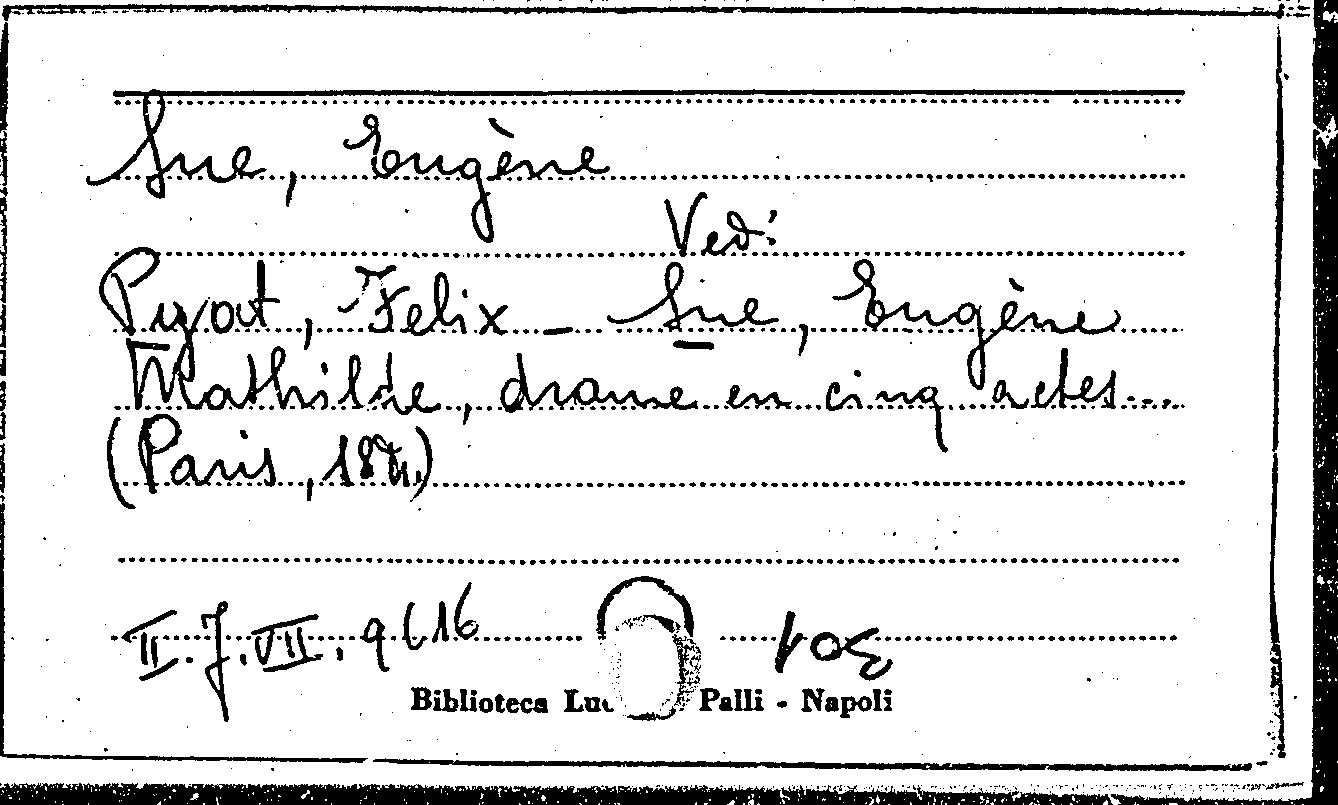 Sue, Eugène
Vedi
Pyat, Felix - Sue, Eugène
Mathilde, drame en cinq actes...
(Paris,
II. J. VII. 9(16
Biblioteca Palli - Napoli